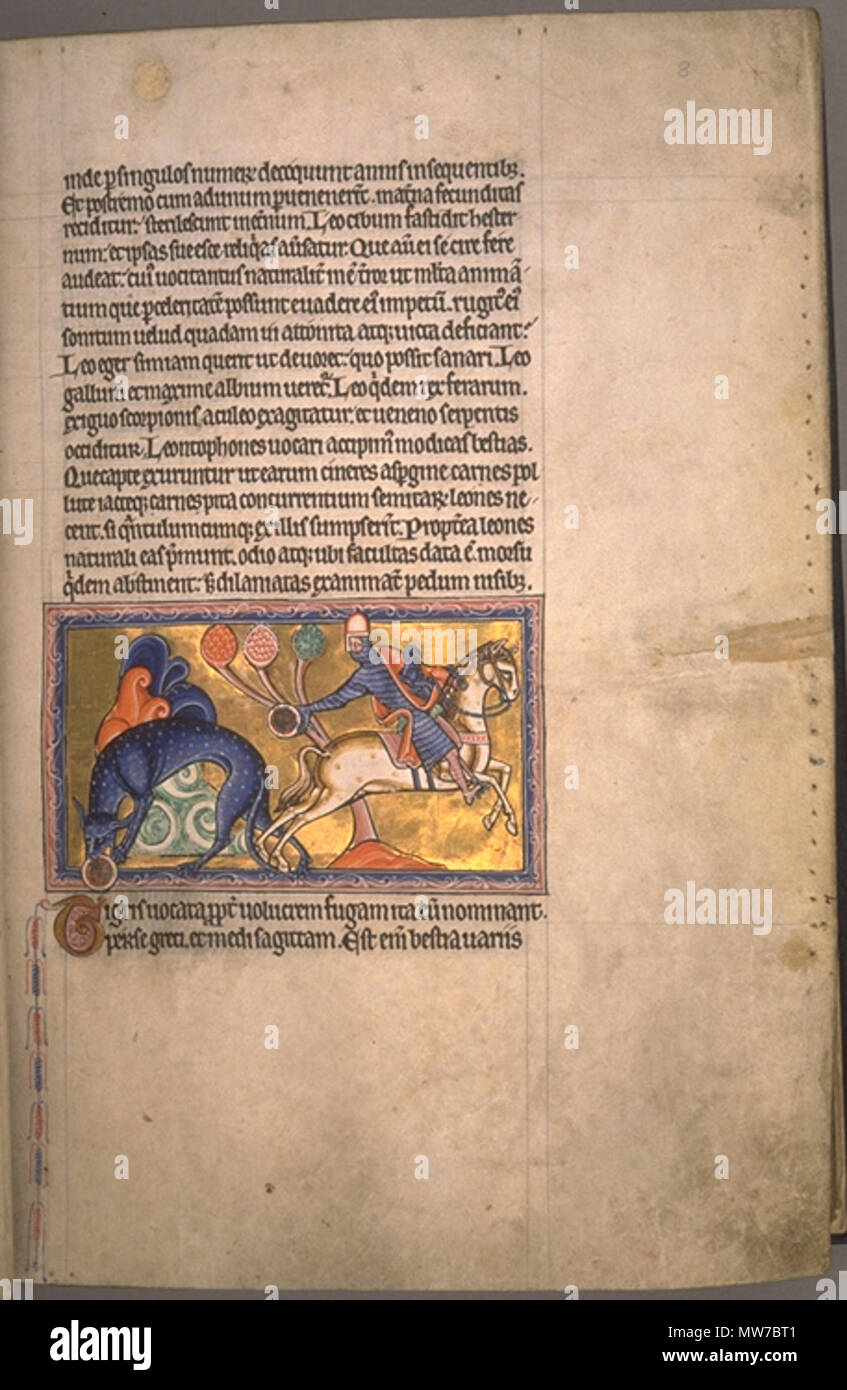 8
inde p singulos numerꝫ decoquunt annis insequentibꝫ.
Et postremo cum ad unum puenerīt. mat̃na fecunditas
reciditur: sterilescunt inet̃num. Leo cibum fastidit hester
num: et ipsas sue esce reliq̃as au̓satur. Que aũ ei se cire fere
audeat: cuiꝰ uoci tantus naturalit̃ inē t̃ror ut ml̃ta animā
tium que p celeritatē possunt euadere eiꝰ impetū. rugitꝰ eiꝰ
sonitum uelud quadam ui attonita atqꝫ uicta deficiant.
Leo eger simiam querit ut deuoret: quo possit sanari. Leo
gallum et maxime album ueret̃. Leo q̃dem rex ferarum.
exiguo scorpionis aculeo exagitatur. et ueneno serpentis
occiditur. Leontophones uocari accipimꝰ modicas bestias.
Que capte exuruntur ut earum cineres asp̃gine carnes pol
lute iacteqꝫ carnes p ita concurrentium semitarꝫ leones ne
cent. si q̃ntulumcumqꝫ ex illis sumpserīt. Propt̃ea leones
naturali eas p̃munt. odio atqꝫ ubi facultas data ē morsu
q̃dem abstinent: ꝫ dilaniatas exanimāt pedum nisibꝫ.
Tigris uocata ꝓpt̃ uolucrem fugam ita eñ nominant
perse greci. et medi sagittam. Est em̄ bestia uariis
a
alamy
alamy
alamy
Image ID: MW7BT1
www.alamy.com